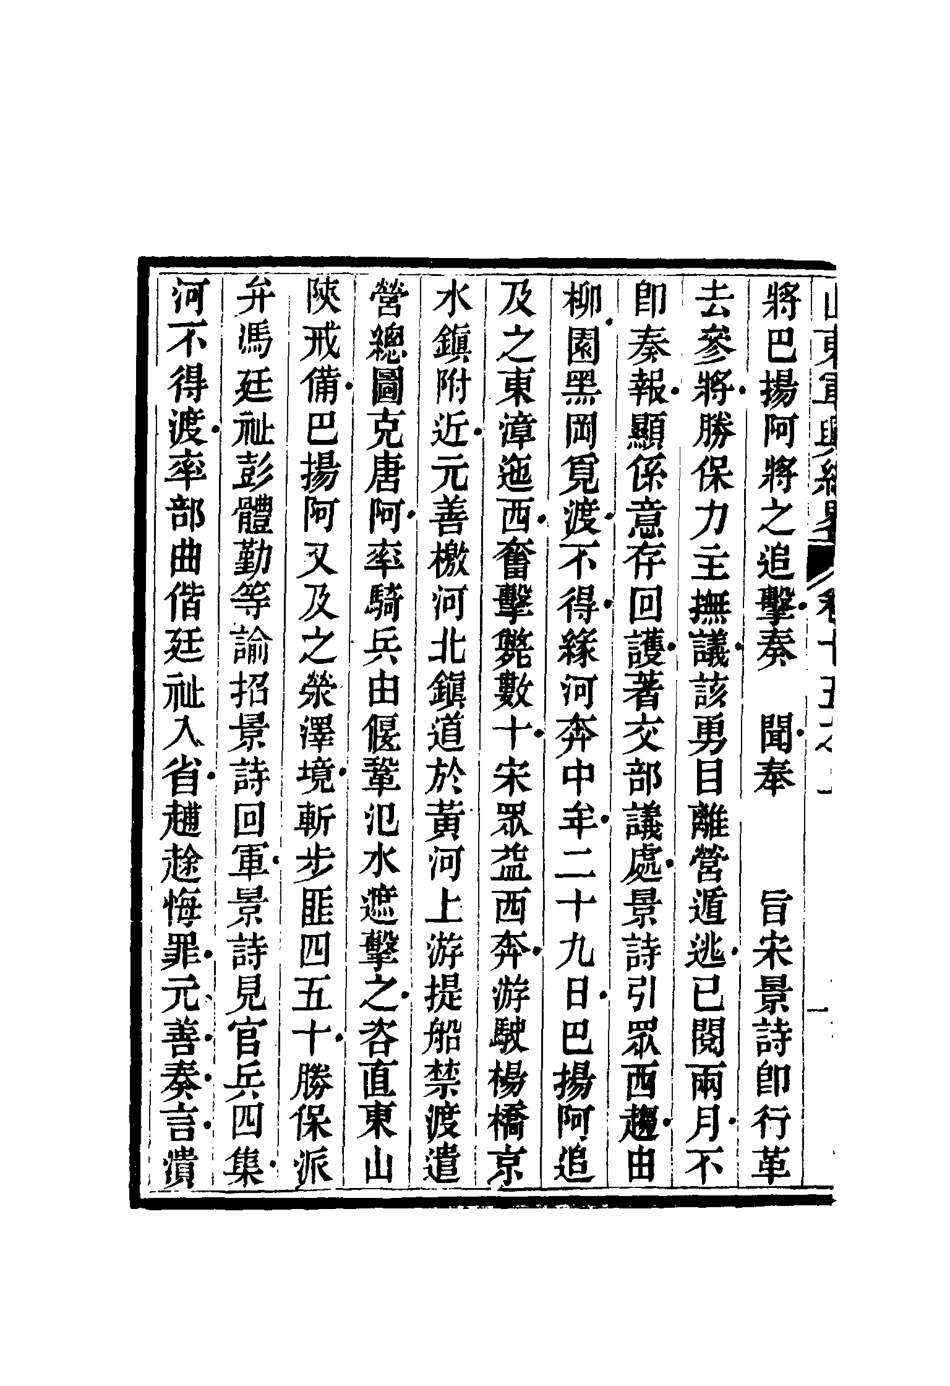 山東軍興紀畧 卷十五之上 一
將巴揚阿將之追擊奏 聞奉 旨宋景詩卽行革
去參將勝保力主撫議該勇目離營遁逃已閱兩月不
卽奏報顯係意存回護著交部議處景詩引眾西趨由
柳園黑岡覓渡不得緣河奔中牟二十九日巴揚阿追
及之東漳迤西奮擊斃數十宋眾益西奔游駛楊橋京
水鎮附近元善檄河北鎮道於黃河上游提船禁渡遣
營總圖克唐阿率騎兵由偃鞏氾水遮擊之咨直東山
陝戒備巴揚阿又及之滎澤境斬步匪四五十勝保派
弁馮廷祉彭體勤等諭招景詩回軍景詩見官兵四集
河不得渡率部曲偕廷祉入省趦趄悔罪元善奏言潰